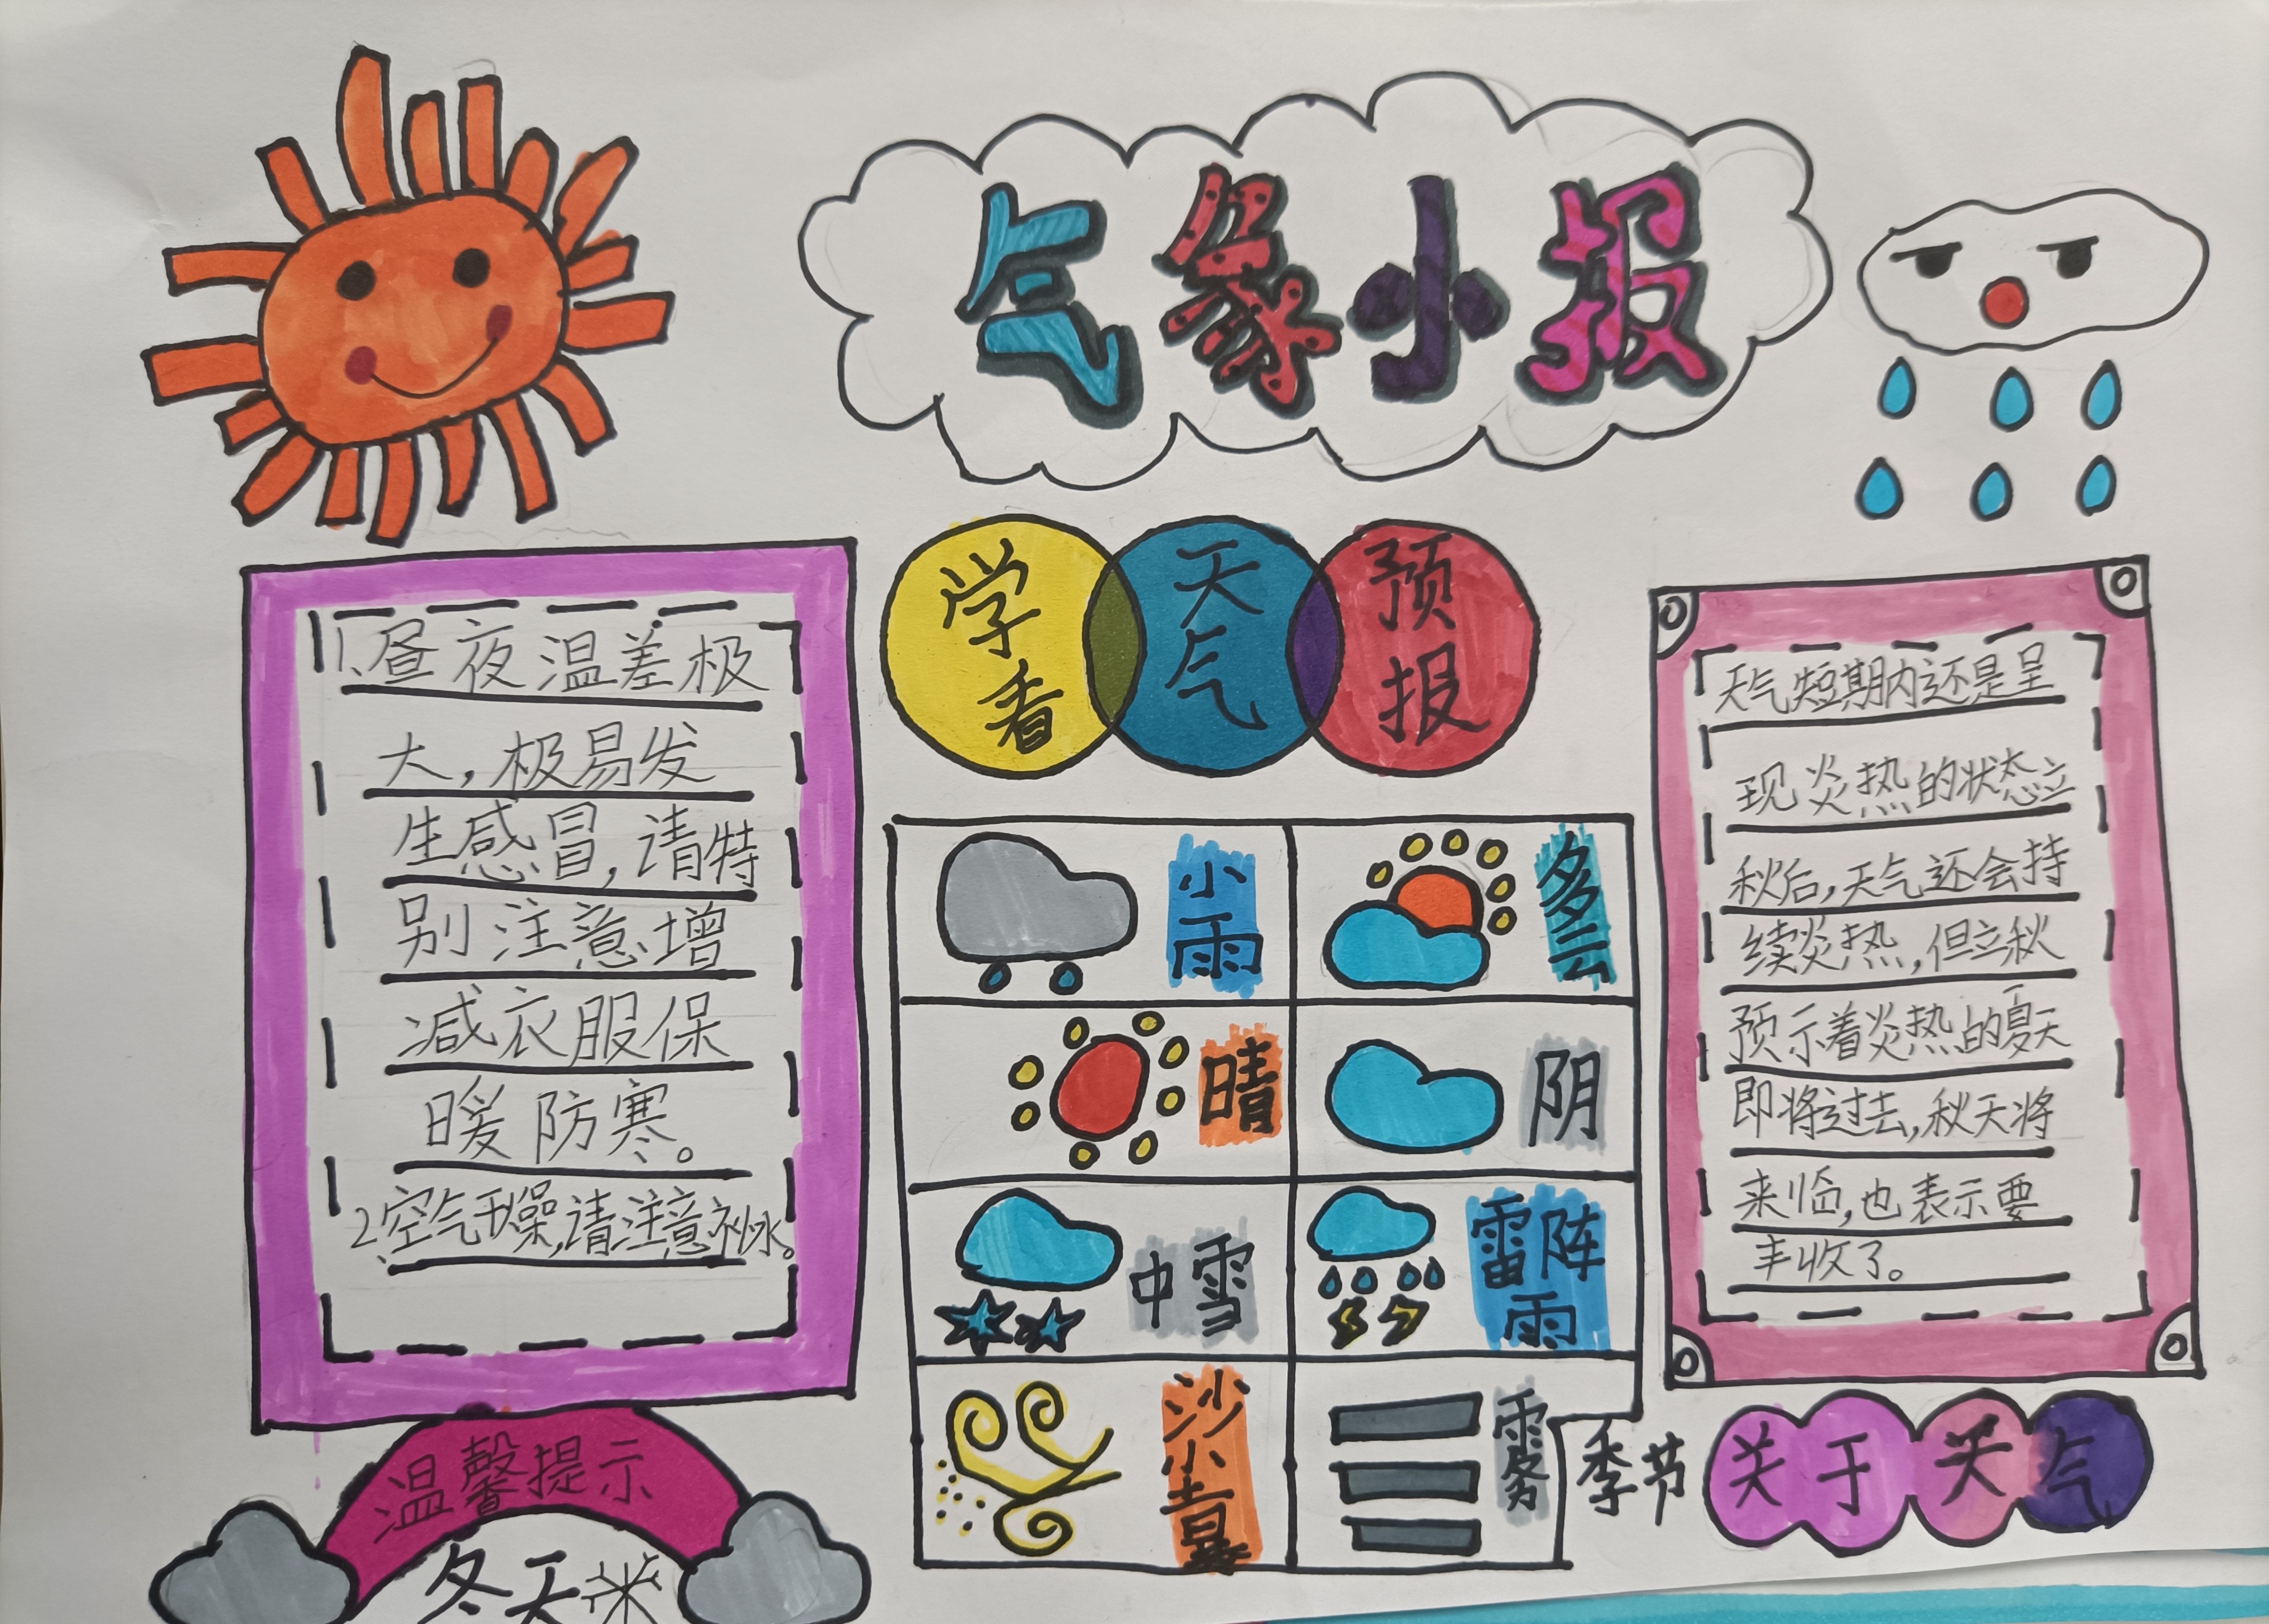 气象小报
学看
天气
预报
1、昼夜温差极
大,极易发
生感冒,请特
别注意增
减衣服保
暖防寒。
2、空气干燥,请注意补水。
温馨提示
冬天
小雨
多云
晴
阴
中雪
雷阵雨
沙尘暴
雾
天气短期内还是呈
现炎热的状态立
秋后,天气还会持
续炎热,但立秋
预示着炎热的夏天
即将过去,秋天将
来临,也表示要
丰收了。
季节
关于天气